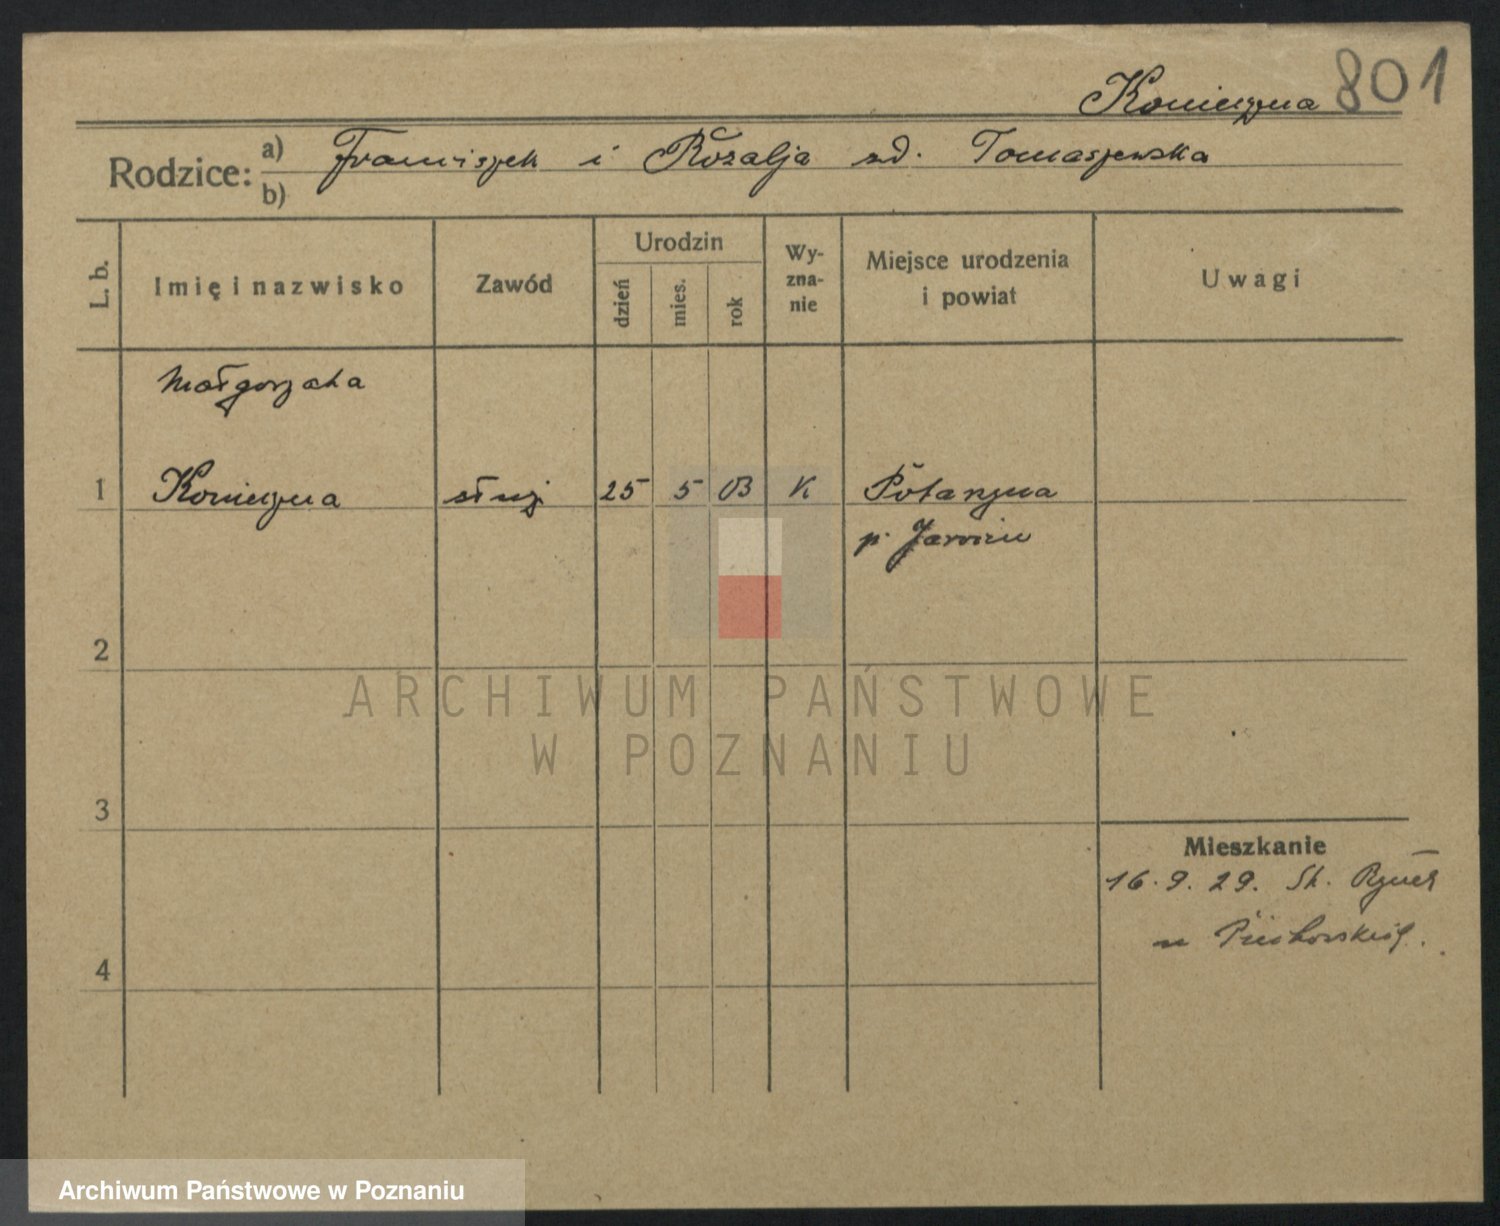 Konieczna 801
Rodzice: a) Franciszek i Rozalja zd. Tomaszewska
b)
L. b. Imię i nazwisko Zawód Urodzin dzień mies. rok Wyznanie Miejsce urodzenia i powiat Uwagi
Małgorzata
1 Konieczna służ 25 5 03 K Potarzyca
p. Jarocin
2
ARCHIWUM PAŃSTWOWE
W POZNANIU
3
Mieszkanie
16.9.29. St. Rynek
u
4
Archiwum Państwowe w Poznaniu